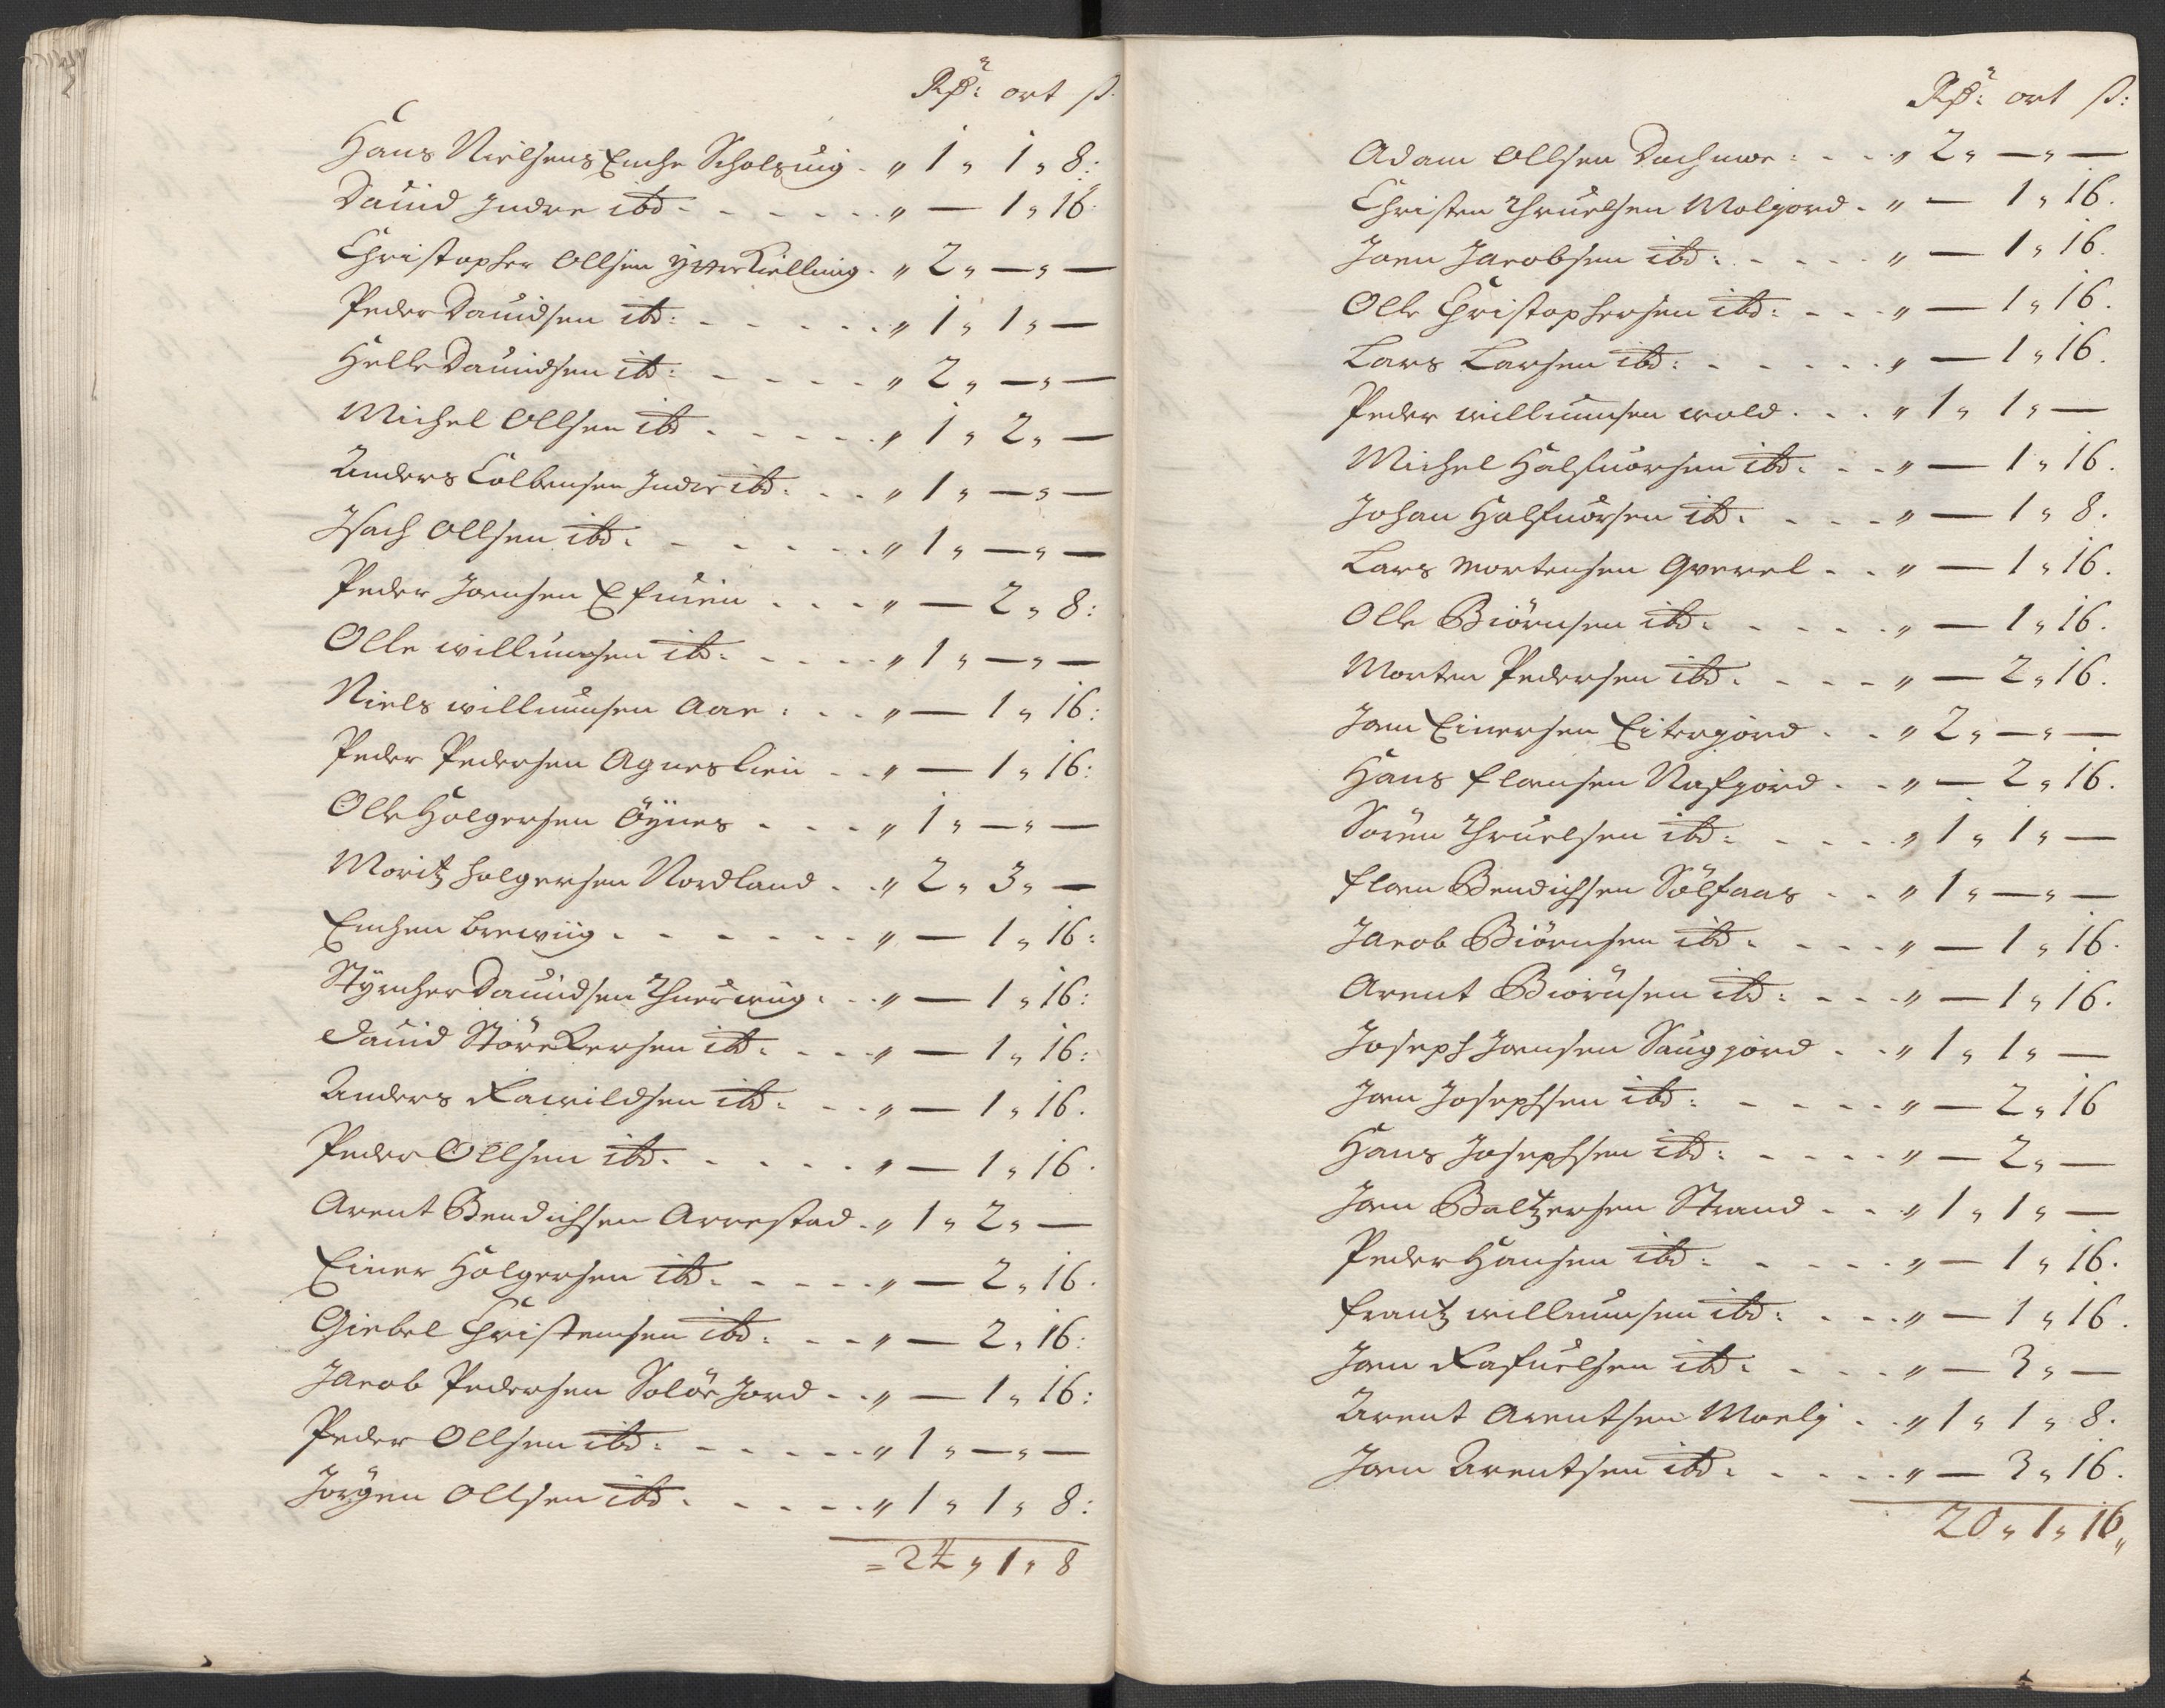 Rdr: ort ß.
Hans Nielsens Enche Scholsuig - „ 1 „ 1 „ 8:
Dauid Indre ibd - - - - - - „ — 1 „ 16:
Christopher Ollsen ytterKielling - „ 2 „ — „ —
Peder Dauidsen ibd: - - - - - „ 1 „ 1 „ —
Helle Dauidsen ibd: - - - - „ 2 „ — „ —
Michel Ollsen ibd - - - - - „ 1 „ 2 „ —
Anders Colbensen Indre ibd: - - „ 1 „ — „ —
Isach Ollsen ibd. - - - - - „ 1 „ — „ —
Peder Joensen Efuien - - - „ — 2 „ 8:
Olle willumsen ibd. - - - - „ 1 „ — „ —
Niels willumsen Aae: - - „ — 1 „ 16:
Peder Pedersen Agneslien - - „ — 1 „ 16:
Olle Holgersen Öynes - - - „ 1 „ — „ —
Moritz holgersen Nordland - - „ 2 „ 3 „ —
Enchen brewiig - - - - - - „ — 1 „ 16:
Styrcher Dauidsen - - „ — 1 „ 16:
Dauid Störckersen ibd. - - - „ — 1 „ 16:
Anders Rawildsen ibd. - - „ — 1 „ 16.
Peder Ollsen ibd. - - - - - „ — 1 „ 16.
Arent Bendichsen Arrestad - „ 1 „ 2 „ —
Einer Holgersen ibd. - - - - - „ — 2 „ 16.
Giebel Christensen ibd. - - „ — 2 „ 16:
Jacob Pedersen Solör Jord - - „ — 1 „ 16:
Peder Ollsen ibd: - - - - - „ 1 „ — „ —
Jörgen Ollsen ibd. - - - - - „ 1 „ 1 „ 8:
= 24 „ 1 „ 8
Rdr: ort ß:
Adam Ollsen Dochmoe: - - - „ 2 „ — „ —
Christen Thruelsen Molgjord - „ — 1 „ 16.
Joen Jacobsen ibd: - - - - „ — 1 „ 16.
Olle Christophersen ibd: - - - „ — 1 „ 16.
Lars Larsen ibd: - - - - - „ — 1 „ 16.
Peder willumsen wold - - - „ 1 „ 1 „ —
Michel Halfuorsen ibd. - - „ — 1 „ 16.
Johan Halfuorsen ibd. - - - „ — 1 „ 8.
Lars Mortensen Gverel - - „ — 1 „ 16.
Olle Biörnsen ibd. - - - - „ — 1 „ 16.
Morten Pedersen ibd. - - - „ — 2 „ 16.
Joen Einersen Eitergjord - - „ 2 „ — „ —
Hans Elensen Nafgjord - - „ — 2 „ 16.
Sören Thruelsen ibd: - - - - „ 1 „ 1 „ —
Elen Bendichsen Sölfaas - - „ 1 „ — „ —
Jacob Biörnsen ibd. - - - - „ — 1 „ 16.
Arent Biörnsen ibd: - - - „ — 1 „ 16.
Joseph Joensen Saugjord - - „ 1 „ 1 „ —
Joen Josephsen ibd: - - - - „ — 2 „ 16
Hans Josephsen ibd: - - - - „ — 2 „ —
Joen Baltzersen Strand - - „ 1 „ 1 „ —
Peder Hansen ibd: - - - - „ — 1 „ 16.
Frantz willumsen ibd: - - - „ — 1 „ 16.
Joen Rafuelsen ibd. - - - - „ — 3 „ —
Arent Arentsen Moelj - - „ 1 „ 1 „ 8.
Joen Arentsen ibd. - - - - „ — 3 „ 16.
20 „ 1 „ 16 „